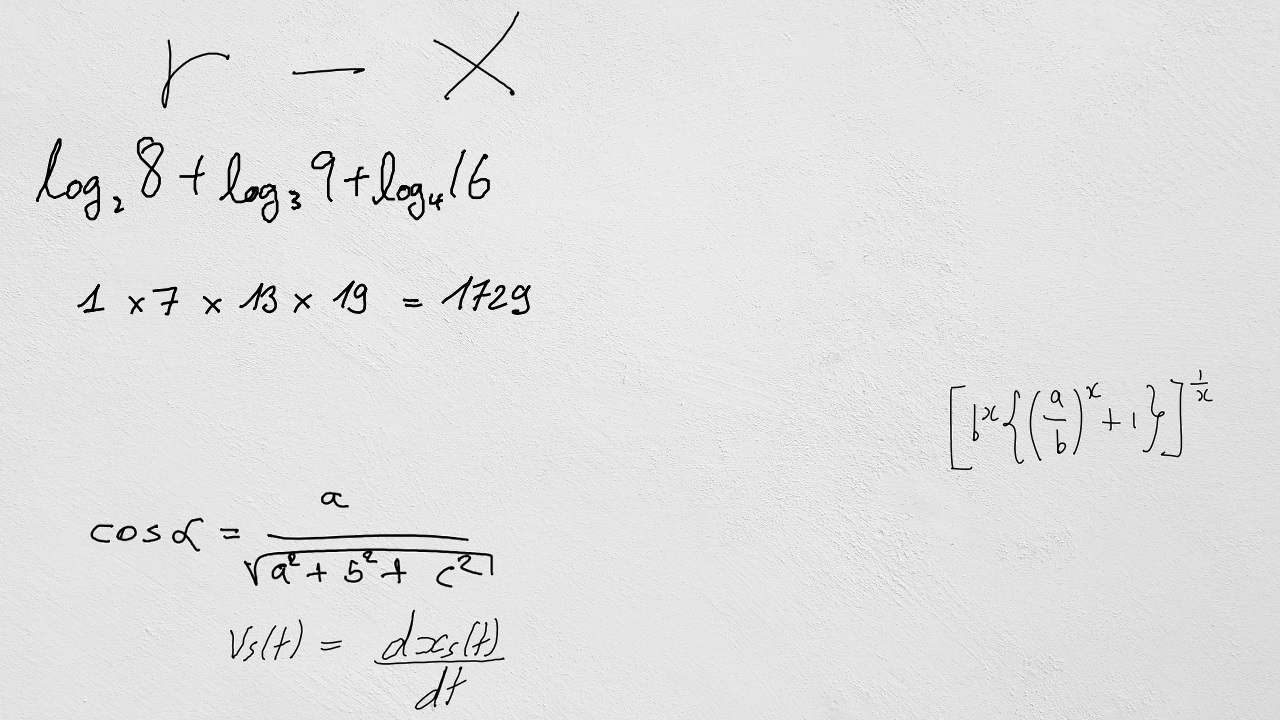 r - x
log₂ 8 + log₃ 9 + log₄ 16
1 × 7 × 13 × 19 = 1729
[b^x {(a/b)^x + 1}]^(1/x)
cos α = a / √(a² + b² + c²)
Vs(t) = dxs(t) / dt